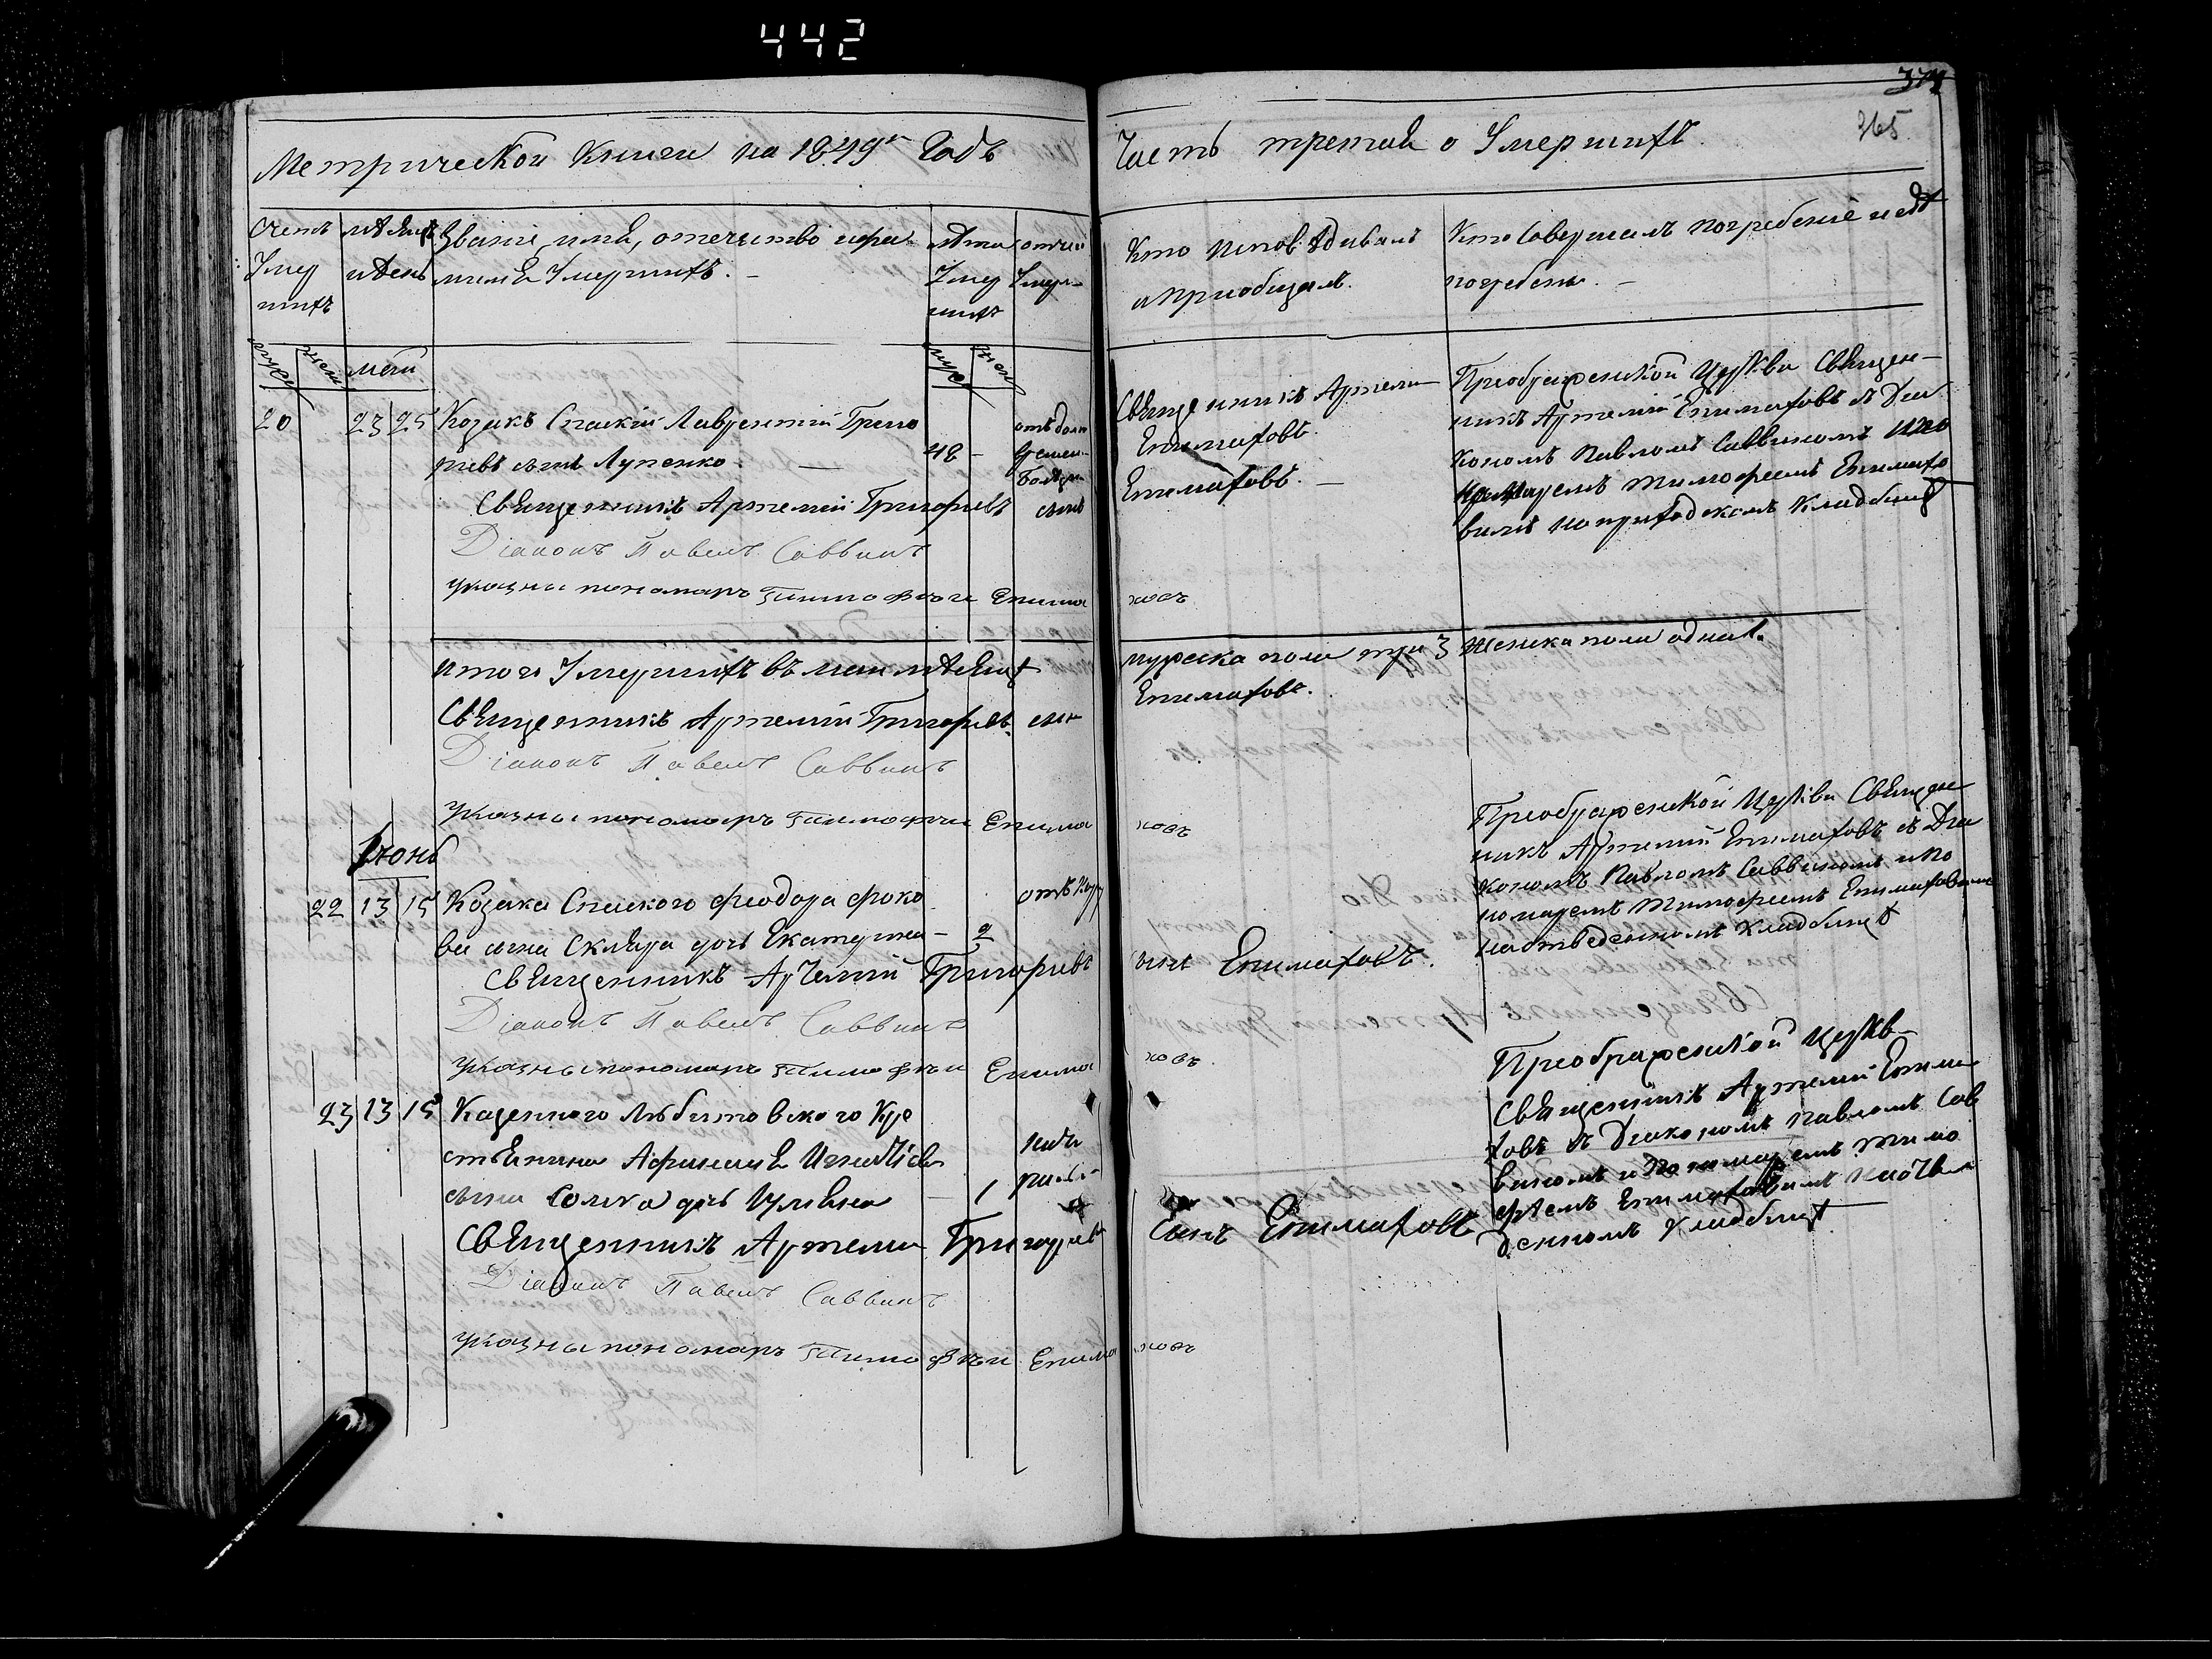 442
374
365
Метрической Книги на 1849й Годъ
Часть третая о Умершихъ.
Счетъ
Умер
шихъ
мѣсяцъ
и день
Званіе, имя, отечество и фа
милія Умершихъ. —
лѣта
Умер
шихъ
отчего
Умерли
Кто Исповѣдивалъ
и Приобщалъ.
Кто Совершалъ погребеніе и гдѣ
погребены. —
муже
жене
маіи
муже
жен
20
23 25
Козакъ Спаскій Лаврентій Григо
ріевъ сынъ Лупенко. —
48 —
отъ долго
времен.
болѣзни
Священникъ Артемій
Епимаховъ.
Преображенской Церкви Священ—
никъ Артемій Епимаховъ съ Діа
кономъ Павломъ Саввиномъ и по
номаремъ Тимофеемъ Епимахо
вимъ на приходскомъ Кладбищѣ
Священникъ Артемій Григориевъ сынъ Епимаховъ. —
Діаконъ Павелъ Саввинъ
указны пономаръ Тимофѣи Епимаховъ
итого Умершихъ въ маи мѣсяцѣ мужеска пола три 3 женска пола одна 1.
Священникъ Артемій Григориевъ сын Епимаховъ.
Діаконъ Павелъ Саввинъ
указны пономаръ Тимофѣи Епимаховъ
Іюнь
22 13 15
Козака Спаского Феодора Фоко
ва сына Скляра дочь Екатерина —
2
отъ кору
Преображенской Церкви Священ
никъ Артемій Епимаховъ съ Діа
кономъ Павломъ Саввиномъ и по
номаремъ Тимофеемъ Епимаховимъ
на отведенномъ кладбищѣ
Священникъ Артемій Григориевъ сынъ Епимаховъ.
Діаконъ Павелъ Саввинъ
указны пономаръ Тимофѣи Епимаховъ.
23 13 15
Казенного Любитовского Кре
стьянина Афанасія Игнатіев
сына Сомка дочь Улияна —
1
Преображенской Церкв—
Священникъ Артемій Епима
ховъ съ Діакономъ Павломъ Сав
виномъ и Пономаремъ Тимо
фѣемъ Епимаховимъ на отве
денномъ Кладбищѣ
Священникъ Артемии Григориевъ Сынъ Епимаховъ
Діаконъ Павелъ Саввинъ
указны пономаръ Тимофѣи Епимаховъ